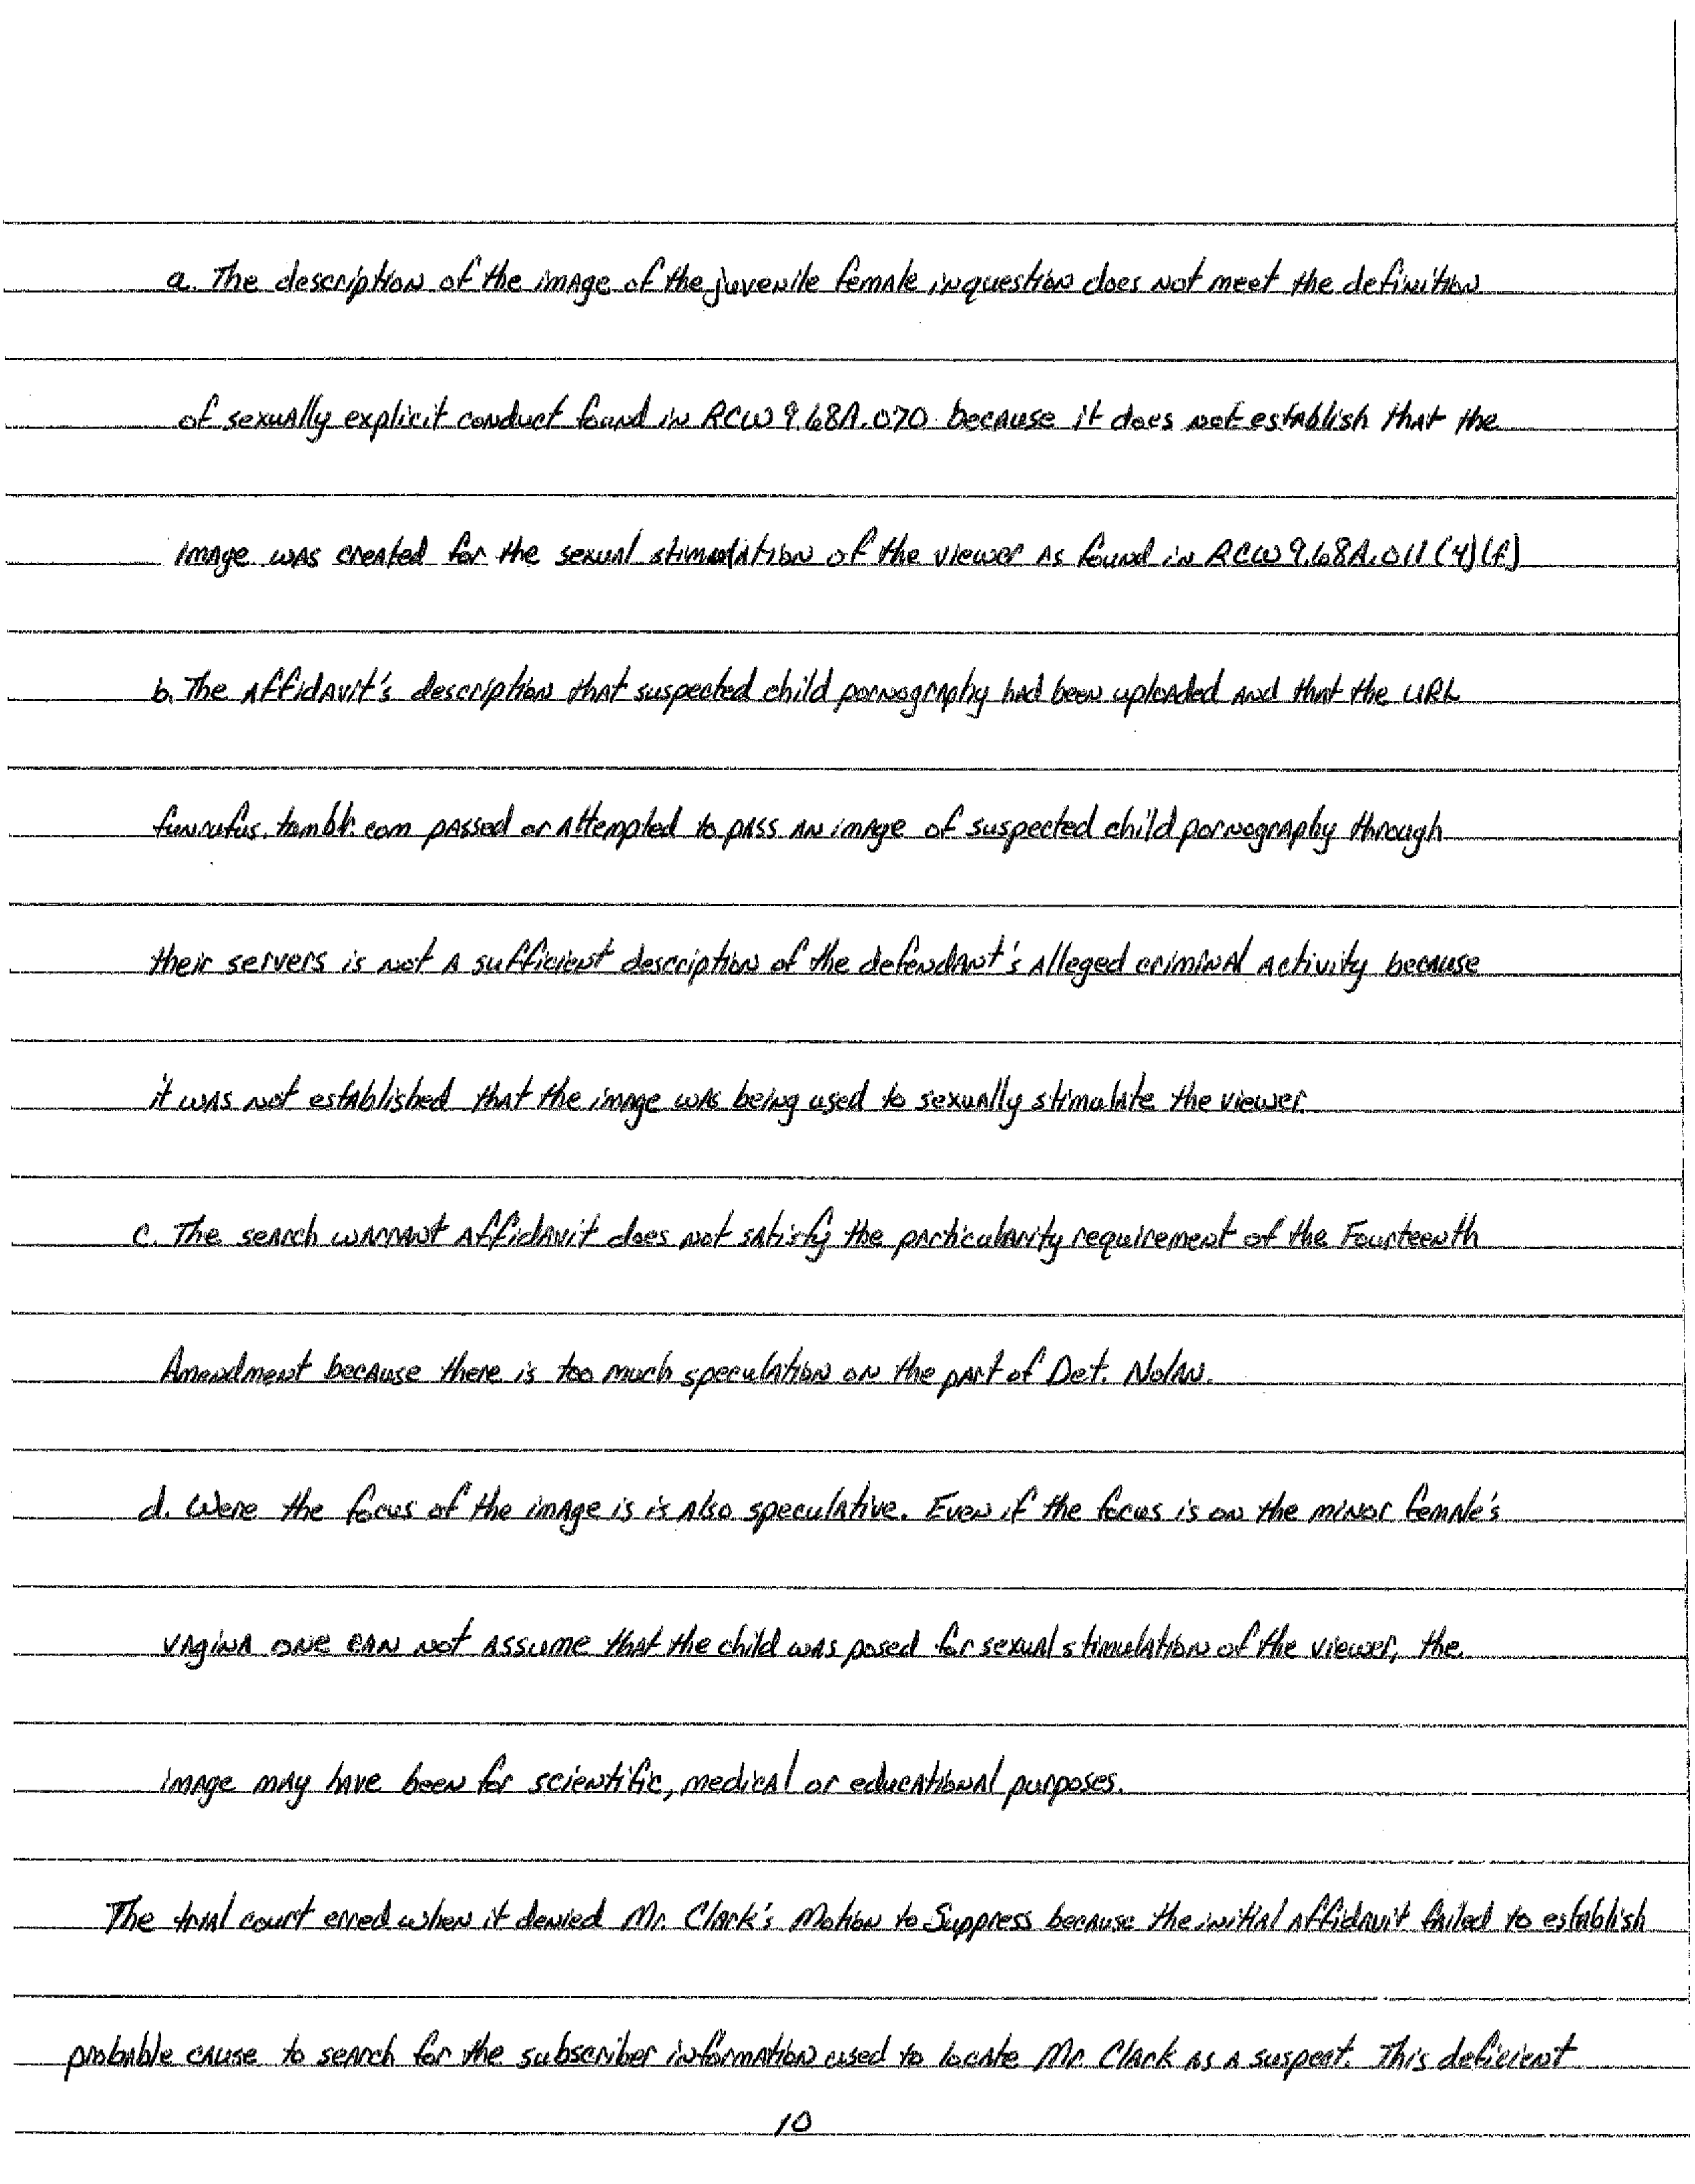 a. The description of the image of the juvenile female inquestion does not meet the definition
of sexually explicit conduct found in RCW 9.68A.070 because it does not establish that the
image was created for the sexual stimulation of the viewer as found in RCW 9.68A.011(4)(f)
b. The affidavit's description that suspected child pornography had been uploaded and that the URL
funrufus.tumblr.com passed or attempted to pass an image of suspected child pornography through
their servers is not a sufficient description of the defendant's alleged criminal activity because
it was not established that the image was being used to sexually stimulate the viewer.
c. The search warrant affidavit does not satisfy the particularity requirement of the Fourteenth
Amendment because there is too much speculation on the part of Det. Nolan.
d. Were the focus of the image is is also speculative. Even if the focus is on the minor female's
vagina one can not assume that the child was posed for sexual stimulation of the viewer, the
image may have been for scientific, medical or educational purposes.
The trial court erred when it denied Mr. Clark's Motion to Suppress because the initial affidavit failed to establish
probable cause to search for the subscriber information used to locate Mr. Clark as a suspect. This deficient
10